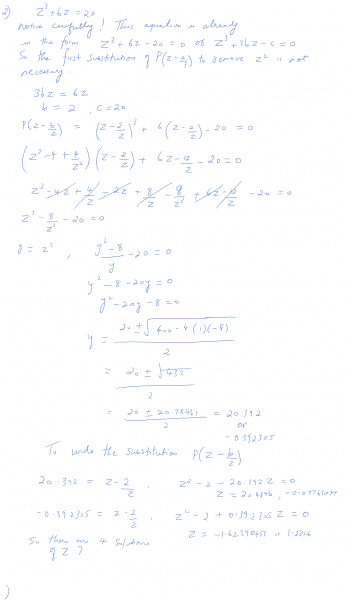 2) z³ + 6z = 20
Notice carefully! This equation is already
in the form z³ + 6z - 20 = 0 or z³ + 3bz - c = 0
So the first substitution of P(z - a/3) to remove z² is not
necessary
3bz = 6z
b = 2, c = 20
P(z - b/z) = (z - 2/z)³ + 6(z - 2/z) - 20 = 0
(z² - 4 + 4/z²)(z - 2/z) + 6z - 12/z - 20 = 0
z³ - 4z + 4/z - 2z + 8/z - 8/z³ + 6z - 12/z - 20 = 0
z³ - 8/z³ - 20 = 0
y = z³, (y² - 8)/y - 20 = 0
y² - 8 - 20y = 0
y² - 20y - 8 = 0
y = (20 ± √(400 - 4(1)(-8)))/2
= (20 ± √432)/2
= (20 ± 20.78461)/2 = 20.392
or
-0.392305
To undo the substitution P(z - b/z)
20.392 = z - 2/z, z² - 2 - 20.392z = 0
z = 20.4896, -0.0976
-0.392305 = z - 2/z, z² - 2 + 0.392305z = 0
z = -1.62390451 or 1.2316
So there are 4 solutions
of z?
)